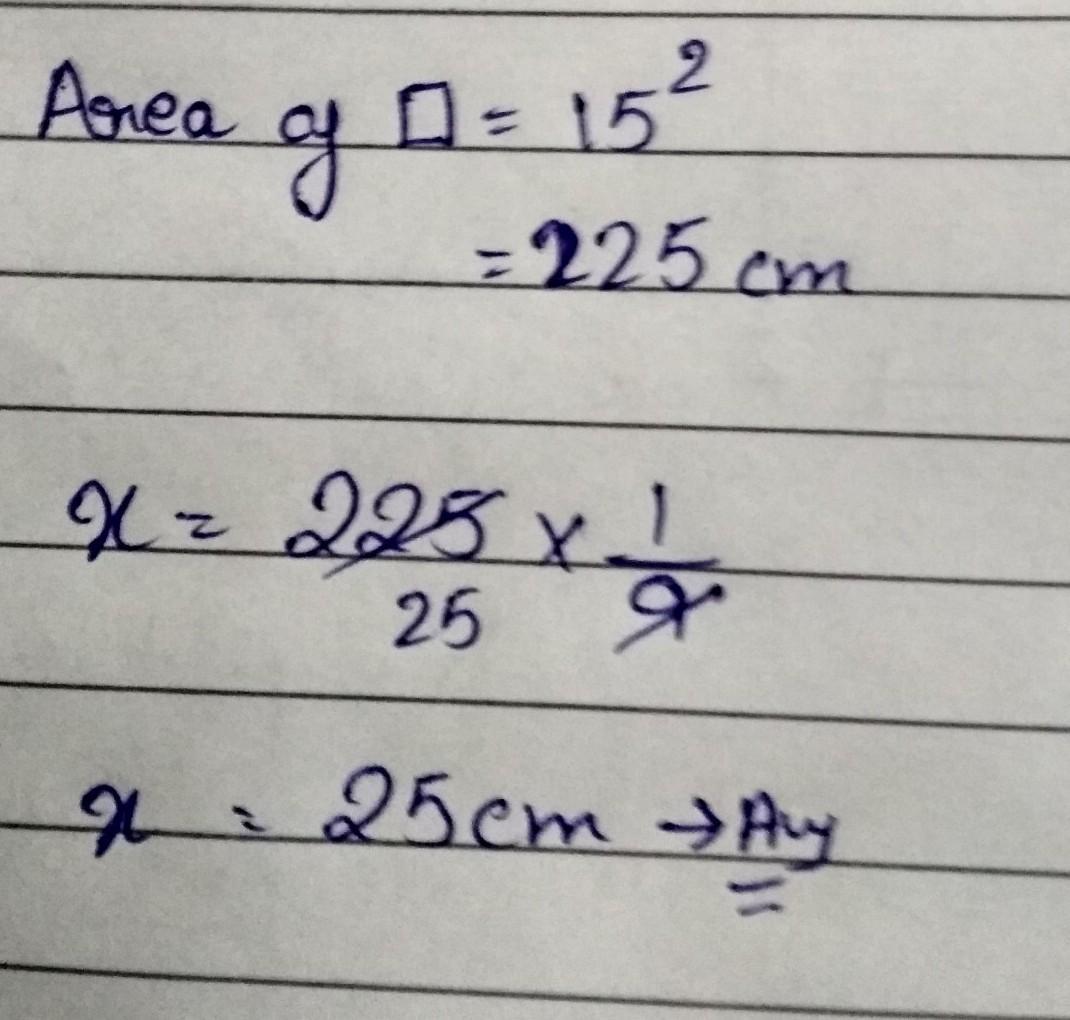 Area of □ = 15²
= 225 cm
x = 225 × 1/9
25
x = 25 cm → Ans